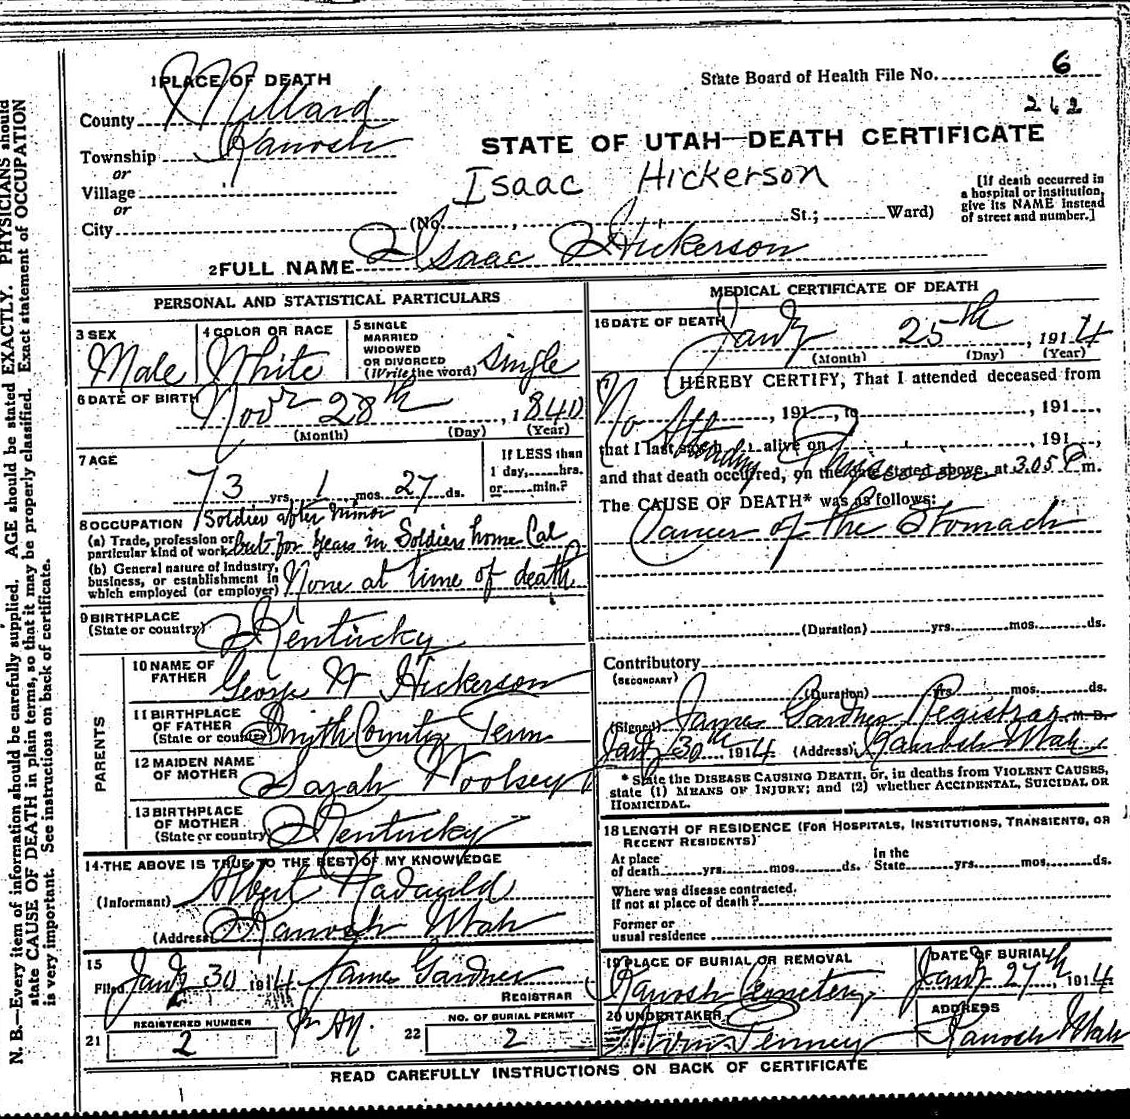 N. B.—Every item of information should be carefully supplied. AGE should be stated EXACTLY. PHYSICIANS should
state CAUSE OF DEATH in plain terms, so that it may be properly classified. Exact statement of OCCUPATION
is very important. See instructions on back of certificate.
1 PLACE OF DEATH
State Board of Health File No. 6
262
County Millard
Township Kanosh
or
Village
or
City
STATE OF UTAH—DEATH CERTIFICATE
Isaac Hickerson
[If death occurred in
a hospital or institution,
give its NAME instead
of street and number.]
(No. , St.; Ward)
2 FULL NAME Isaac Hickerson
PERSONAL AND STATISTICAL PARTICULARS
3 SEX
Male
4 COLOR OR RACE
White
5 SINGLE
MARRIED
WIDOWED
OR DIVORCED
(Write the word) Single
6 DATE OF BIRTH
Novr 28th , 1840
(Month) (Day) (Year)
7 AGE
73 yrs. 1 mos. 27 ds.
If LESS than
1 day, hrs.
or min.?
8 OCCUPATION Soldier after Minor
(a) Trade, profession or
particular kind of work But for Years in Soldiers home Cal
(b) General nature of Industry,
business, or establishment in
which employed (or employer) None at time of death.
9 BIRTHPLACE
(State or country) Kentucky
PARENTS
10 NAME OF
FATHER George W Hickerson
11 BIRTHPLACE
OF FATHER
(State or country) Smyth County Tenn
12 MAIDEN NAME
OF MOTHER Sarah Woolsey
13 BIRTHPLACE
OF MOTHER
(State or country) Kentucky
14 THE ABOVE IS TRUE TO THE BEST OF MY KNOWLEDGE
(Informant) Albert Nadauld
(Address) Kanosh Utah
15
Filed Jany 30 1914 James Gardner
REGISTRAR
21 REGISTERED NUMBER
2
22 NO. OF BURIAL PERMIT
2
MEDICAL CERTIFICATE OF DEATH
16 DATE OF DEATH Jany 25th , 1914
(Month) (Day) (Year)
17 I HEREBY CERTIFY, That I attended deceased from
No , 191 , to , 191 ,
that I last saw h alive on , 191 ,
Attending Physician
and that death occurred, on the date stated above, at 3.05 P m.
The CAUSE OF DEATH* was as follows:
Cancer of the Stomach
(Duration) yrs. mos. ds.
Contributory
(SECONDARY)
(Duration) yrs mos. ds.
(Signed) James Gardner Registrar M. D.
Jany 30th 1914 (Address) Kanosh Utah
* State the DISEASE CAUSING DEATH, or, in deaths from VIOLENT CAUSES,
state (1) MEANS OF INJURY; and (2) whether ACCIDENTAL, SUICIDAL OR
HOMICIDAL.
18 LENGTH OF RESIDENCE (FOR HOSPITALS, INSTITUTIONS, TRANSIENTS, OR
RECENT RESIDENTS)
At place
of death yrs. mos. ds.
In the
State yrs. mos. ds.
Where was disease contracted.
if not at place of death?
Former or
usual residence
19 PLACE OF BURIAL OR REMOVAL
Kanosh Cemetery
DATE OF BURIAL
Jany 27th, 1914
20 UNDERTAKER
Penney
ADDRESS
Kanosh Utah
READ CAREFULLY INSTRUCTIONS ON BACK OF CERTIFICATE